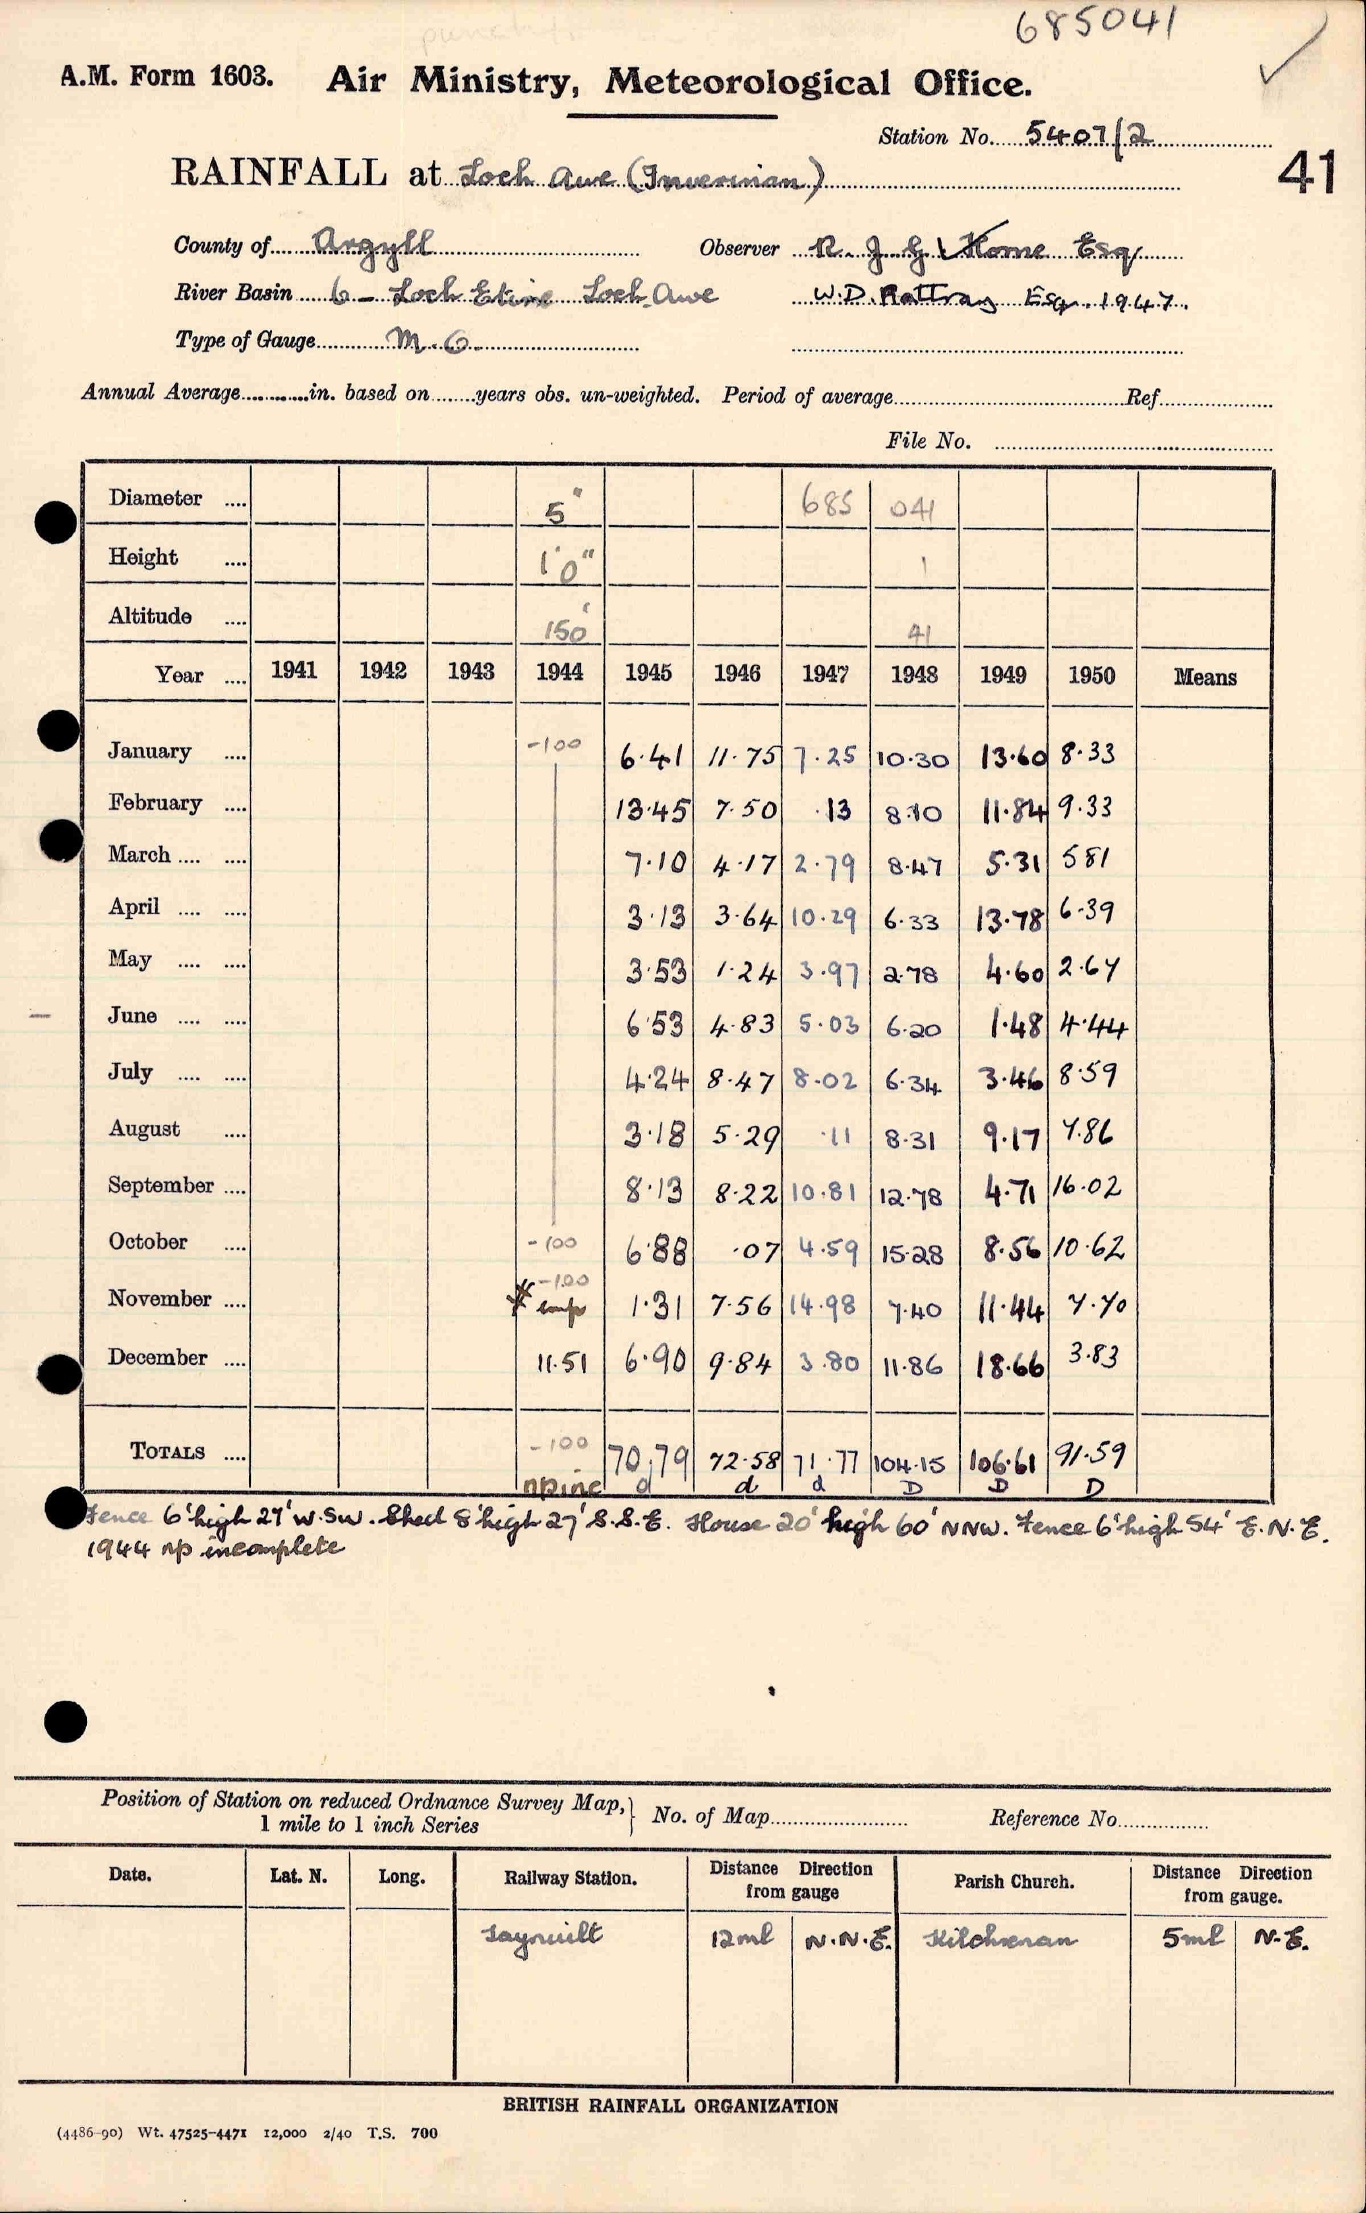 685041
A.M. Form 1603. Air Ministry, Meteorological Office.
Station No. 5407/2
RAINFALL at Loch Awe (Inverinan)
41
County of Argyll Observer R. J. G. Horne Esq
River Basin 6 - Loch Etive Loch Awe W.D. Rattray Esq. 1947.
Type of Gauge M.O.
Annual Average in. based on years obs. un-weighted. Period of average Ref
File No.
Diameter 5" 685 041
Height 1'0" 1
Altitude 150' 41
Year 1941 1942 1943 1944 1945 1946 1947 1948 1949 1950 Means
January -100 6.41 11.75 7.25 10.30 13.60 8.33
February 13.45 7.50 .13 8.10 11.84 9.33
March 7.10 4.17 2.79 8.47 5.31 5 81
April 3.13 3.64 10.29 6.33 13.78 6.39
May 3.53 1.24 3.97 2.78 4.60 2.67
June 6.53 4.83 5.03 6.20 1.48 4.44
July 4.24 8.47 8.02 6.34 3.46 8.59
August 3.18 5.29 .11 8.31 9.17 7.86
September 8.13 8.22 10.81 12.78 4.71 16.02
October -100 6.88 .07 4.59 15.28 8.56 10.62
-100
November * imp 1.31 7.56 14.98 7.40 11.44 7.70
December 11.51 6.90 9.84 3.80 11.86 18.66 3.83
TOTALS -100 70.79 72.58 71.77 104.15 106.61 91.59
np inc d d d D D D
Fence 6' high 27' W.SW. Shed 8' high 27' S.S.E. House 20' high 60' NNW. Fence 6' high 54' E.N.E.
1944 np incomplete
Position of Station on reduced Ordnance Survey Map, 1 mile to 1 inch Series } No. of Map Reference No.
Date. Lat. N. Long. Railway Station. Distance Direction from gauge Parish Church. Distance Direction from gauge.
Taynuilt 12ml N.N.E. Kilchrenan 5ml N.E.
BRITISH RAINFALL ORGANIZATION
(4486-90) Wt. 47525-4471 12,000 2/40 T.S. 700